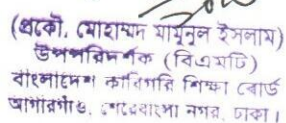 (প্রকৌ. মোহাম্মদ মামুনুল ইসলাম)
উপপরিদর্শক (বিএমটি)
বাংলাদেশ কারিগরি শিক্ষা বোর্ড
আগারগাঁও, শেরেবাংলা নগর, ঢাকা।